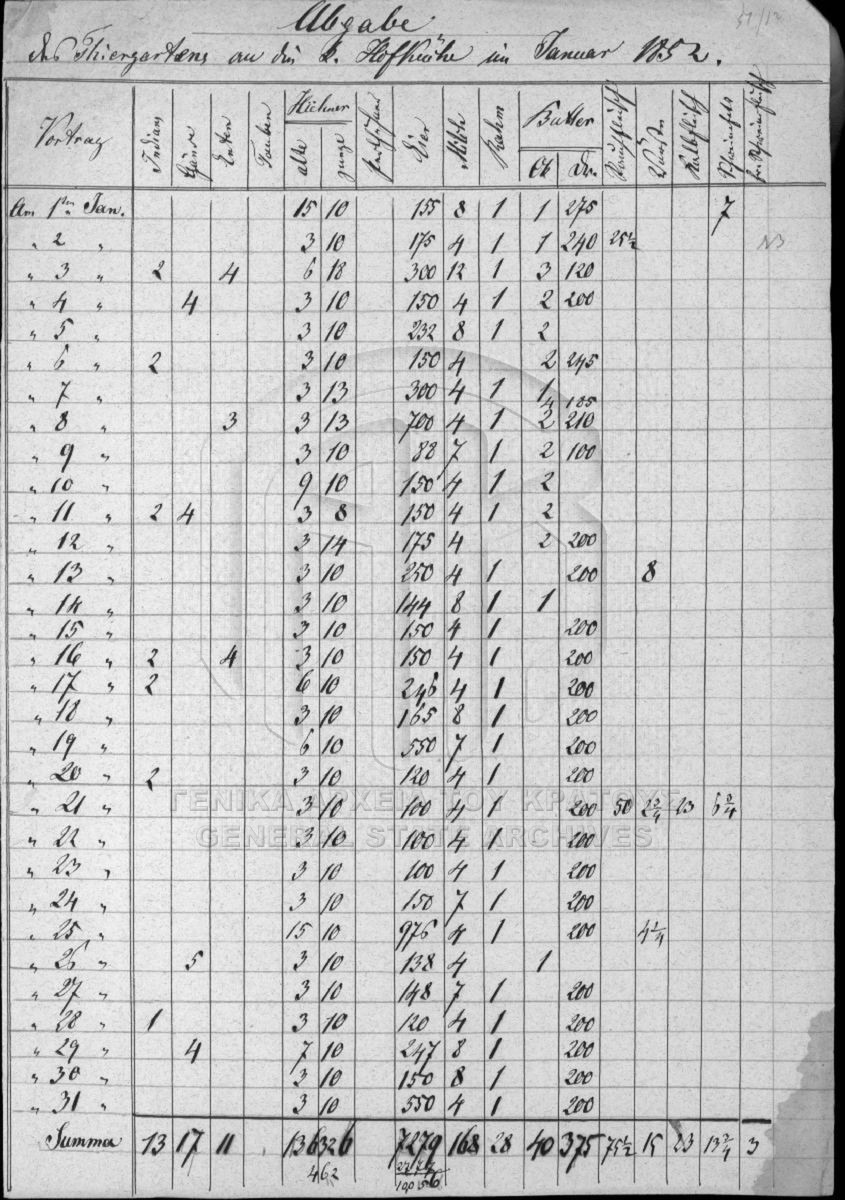 51/12
Abgabe
des Thiergartens an die k. Hofküche im Januar 1852.
Vortrag Indian Gänse Enten Tauben Hühner alte junge Eier Milch Rahm Butter Ok Dr. Rauchfleisch Würste Kalbfleisch
Am 1ten Jan. 15 10 155 8 1 1 275 7
" 2 " 3 10 175 4 1 1 240 25½ NB
" 3 " 2 4 6 18 300 12 1 3 120
" 4 " 4 3 10 150 4 1 2 200
" 5 " 3 10 232 8 1 2
" 6 " 2 3 10 150 4 2 245
" 7 " 3 13 300 4 1 1 185
" 8 " 3 3 13 700 4 1 2 210
" 9 " 3 10 88 7 1 2 100
" 10 " 9 10 150 4 1 2
" 11 " 2 4 3 8 150 4 1 2
" 12 " 3 14 175 4 2 200
" 13 " 3 10 250 4 1 200 8
" 14 " 3 10 144 8 1 1
" 15 " 3 10 150 4 1 200
" 16 " 2 4 3 10 150 4 1 200
" 17 " 2 6 10 246 4 1 200
" 18 " 3 10 165 8 1 200
" 19 " 6 10 550 7 1 200
" 20 " 2 3 10 120 4 1 200
" 21 " 3 10 100 4 1 200 50 2¾ 23 6¾
ΓΕΝΙΚΑ ΑΡΧΕΙΑ ΤΟΥ ΚΡΑΤΟΥΣ
GENERAL STATE ARCHIVES
" 22 " 3 10 100 4 1 200
" 23 " 3 10 100 4 1 200
" 24 " 3 10 150 7 1 200
" 25 " 15 10 976 4 1 200 4¼
" 26 " 5 3 10 138 4 1
" 27 " 3 10 148 7 1 200
" 28 " 1 3 10 120 4 1 200
" 29 " 4 7 10 247 8 1 200
" 30 " 3 10 150 8 1 200
" 31 " 3 10 550 4 1 200
Summa 13 17 11 136 326 7279 168 28 40 375 75½ 15 23 13¾ 3
462